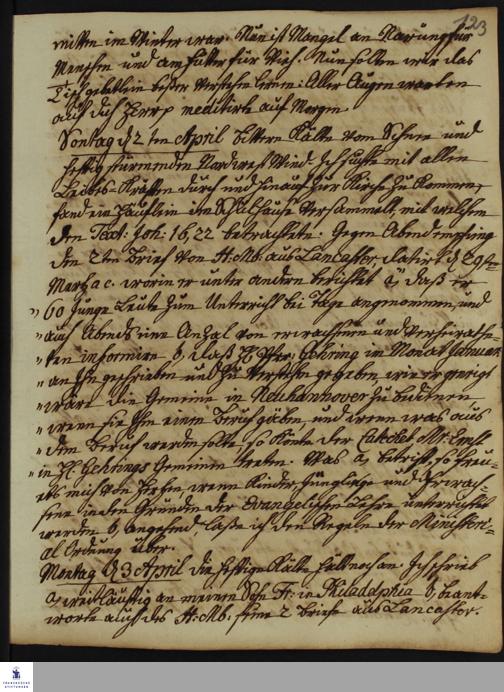 123
mitten im Winter war. Nun ist Mangel an Narung für
Menschen und am Futter für Vieh. Nun solten wir das
Tischgebetlein besser verstehen lernen: Aller Augen warten
auf dich Herr p meditirte auf Morgen.
Sontag d 2ten April bittere Kälte vom Schnee und
heftig stürmenden Nordwest Wind. Ich suchte mit allen
Leibes Kräften durch und hinauf zur Kirche zu kommen,
fand ein Häuflein im Schulhause versammelt, mit welchem
den Text: Joh: 16,22 betrachtete. Gegen Abend empfing
den 2ten Brief von H: Mb: aus Lancaster datirt d 29ten
Martz a c. worin er unter andern berichtet a, daß er
60 junge Leute zum Unterricht bei Tage angenommen, und
auch Abends eine Anzal von erwachsenen und verheirathe-
ten informire b, daß H Pfr: Gehring im Monat Januar
an Ihn geschrieben und zu verstehen gegeben, wie er geneigt
wäre die Gemeine in Neuhannover zu bedienen
wenn sie Ihm einen Beruf gäben, und wenn was aus
dem Beruf werden solte, so könte der Mr: Ernst
in H Gehrings Gemeine treten. Was a, betrift, so freu-
ets mich von Herzen, wenn Kinder, Jünglinge und Erwach-
sene in den Gründen der Evangelischen Lehre unterrichtet
werden b, angehend laße ich den Regeln der Ministeri-
al Ordnung über.
Montag d 3 April die heftige Kälte hält noch an. Ich schrieb
a, weitläuftig an meinen Sohn Fr: in Philadelphia b, beant-
worte auch des H: Mb: seine 2 Briefe aus Lancaster.